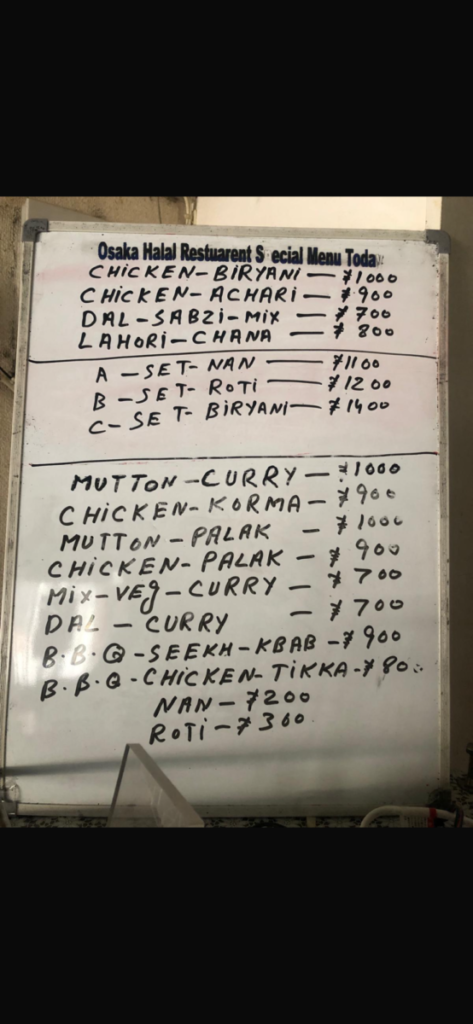 Osaka Halal Restuarent S ecial Menu Toda
CHiCKEN-BiRYANi - ¥1000
CHiCKEN-ACHARi - ¥900
DAL-SABZi-MiX - ¥700
LAHORi-CHANA - ¥800
A - SET-NAN - ¥1100
B - SET-ROTi - ¥1200
C-SET-BiRYANi - ¥1400
MUTTON-CURRY - ¥1000
CHiCKEN-KORMA - ¥900
MUTTON-PALAK - ¥1000
CHiCKEN-PALAK - ¥900
Mix-VEg-CURRY - ¥700
DAL - CURRY - ¥700
B.B.Q-SEEKH-KBAB-¥900
B.B.Q-CHiCKEN-TiKKA-¥800
NAN-¥200
ROTi-¥300